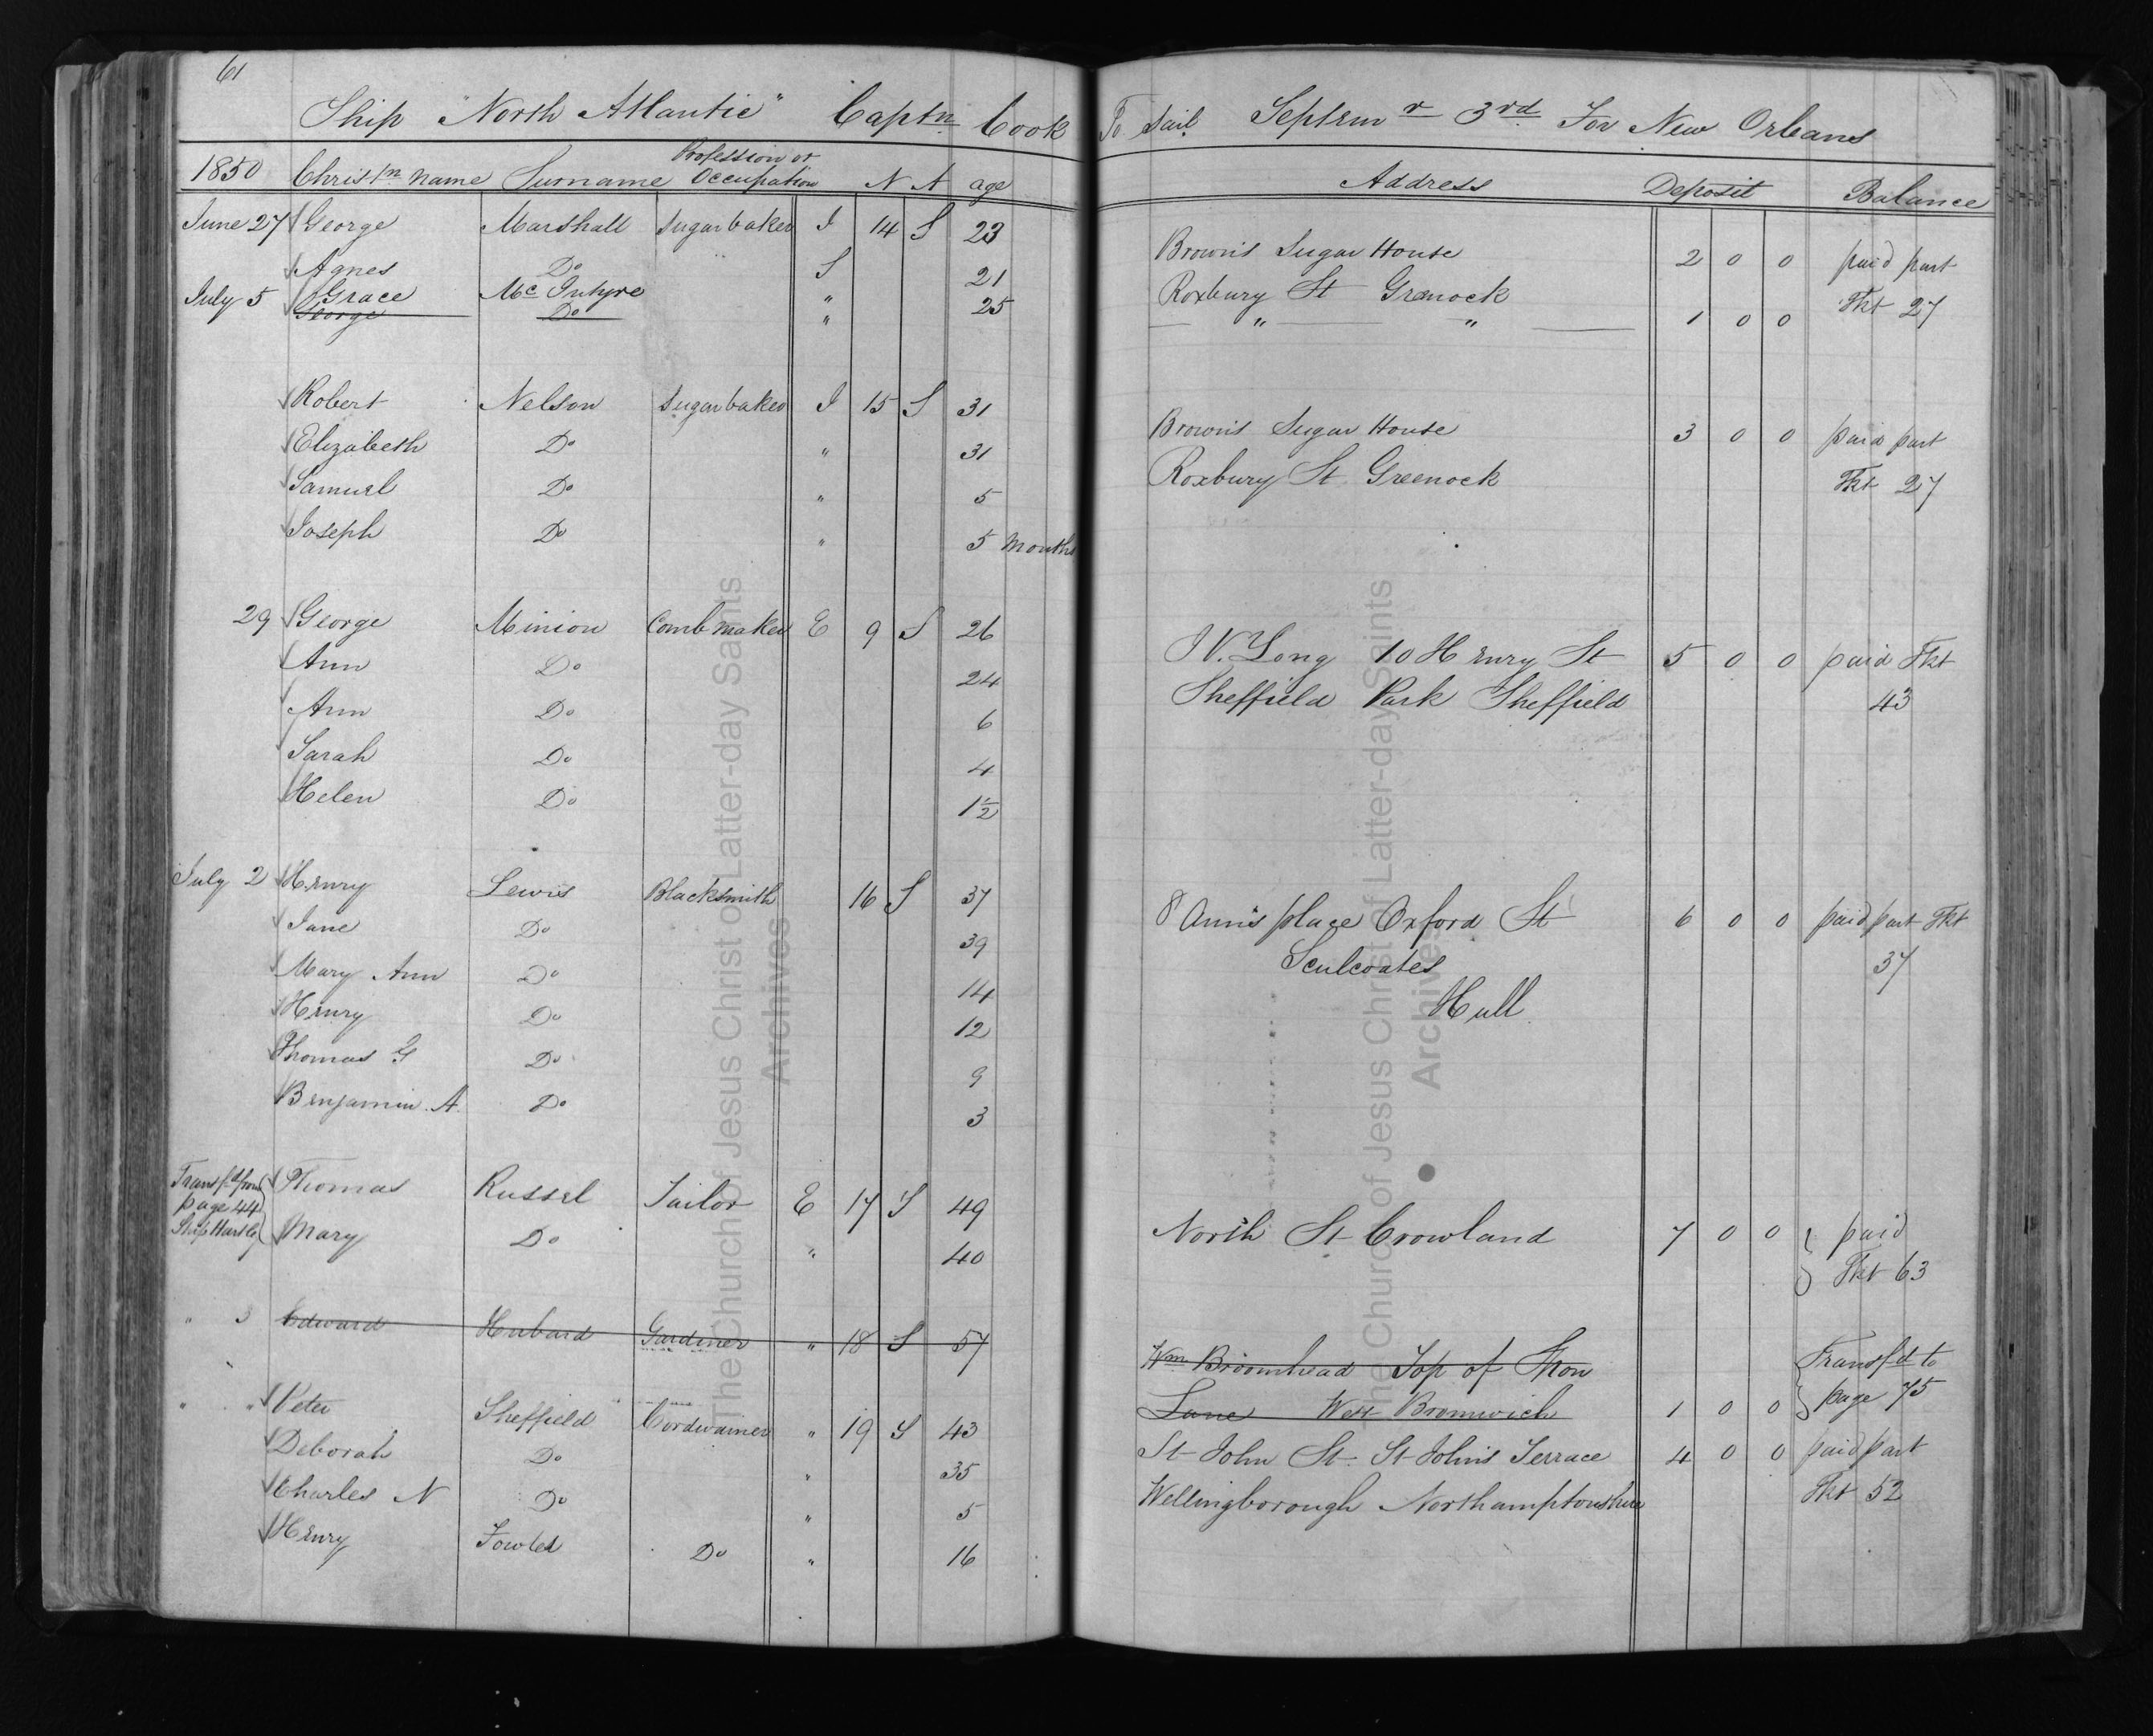 61
Ship "North Atlantic" Captn Cook To Sail Septemr 3rd For New Orleans
1850 Christn Name Surname Profession or Occupation N A age Address Deposit Balance
June 27 George Marshall Sugar baker I 14 S 23
Agnes Do S 21
July 5 Grace McIntyre " 25
George Do "
Robert Nelson Sugar baker I 15 S 31
Elizabeth Do " 31
Samuel Do " 5
Joseph Do " 5 Months
29 George Minion Comb maker E 9 S 26
Ann Do 24
Ann Do 6
Sarah Do 4
Helen Do 1½
July 2 Henry Lewis Blacksmith 16 S 37
Jane Do 39
Mary Ann Do 14
Henry Do 12
Thomas G Do 9
Benjamin A. Do 3
Transfd from page 44 Ship Hartley
Thomas Russel Tailor E 17 S 49
Mary Do " 40
" 3 Edward Hubard Gardiner " 18 S 57
" " Peter Sheffield Cordwainer " 19 S 43
Deborah Do " 35
Charles N Do " 5
Henry Fowler Do " 16
Brown's Sugar House 2 0 0 paid part
Roxbury St Grenock Tkt 27
" " 1 0 0
Brown's Sugar House 3 0 0 paid part
Roxbury St. Greenock Tkt 27
W. Long 10 Henry St 5 0 0 paid Tkt
Sheffield Park Sheffield 43
8 Ann's place Oxford St 6 0 0 paid part Tkt
Sculcoates 37
Hull
North St Crowland 7 0 0 paid
Tkt 63
Wm Broomhead Top of Spon Transfd to
Lane West Bromwich 1 0 0 page 75
St John St. St John's Terrace 4 0 0 paid part
Wellingborough Northamptonshire Tkt 52
The Church of Jesus Christ of Latter-day Saints
Archives
The Church of Jesus Christ of Latter-day Saints
Archives